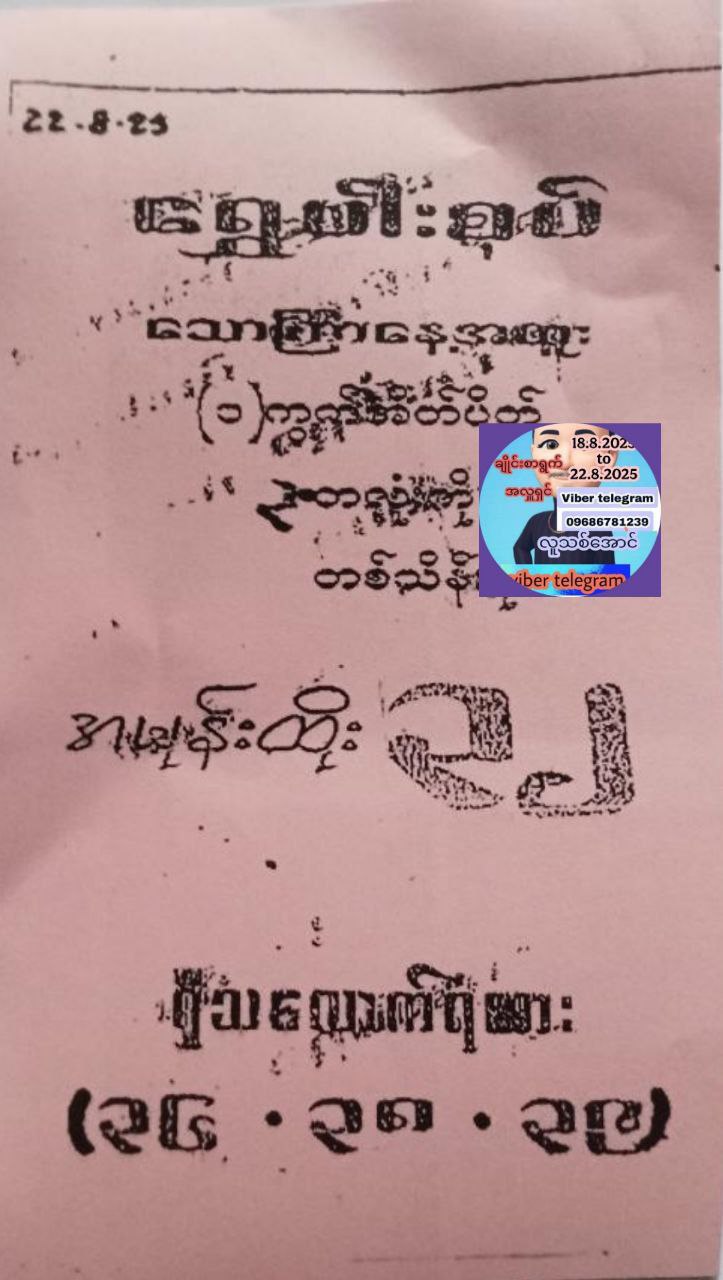 22-8-25
ရွှေပေါ်းချပ်
သောကြာနေ့အထူး
(၁)ကွက်အိတ်ပိတ်
တစ်သိန်း
18.8.2025
to
22.8.2025
ချိုင်းစာရွက်
အလှူရှင်
Viber telegram
09686781239
လူသစ်အောင်
viber telegram
အမုန်းထိုး ၃၂
ရှိသလောက်ရဲအား
(၃၄ · ၃၈ · ၃၉)